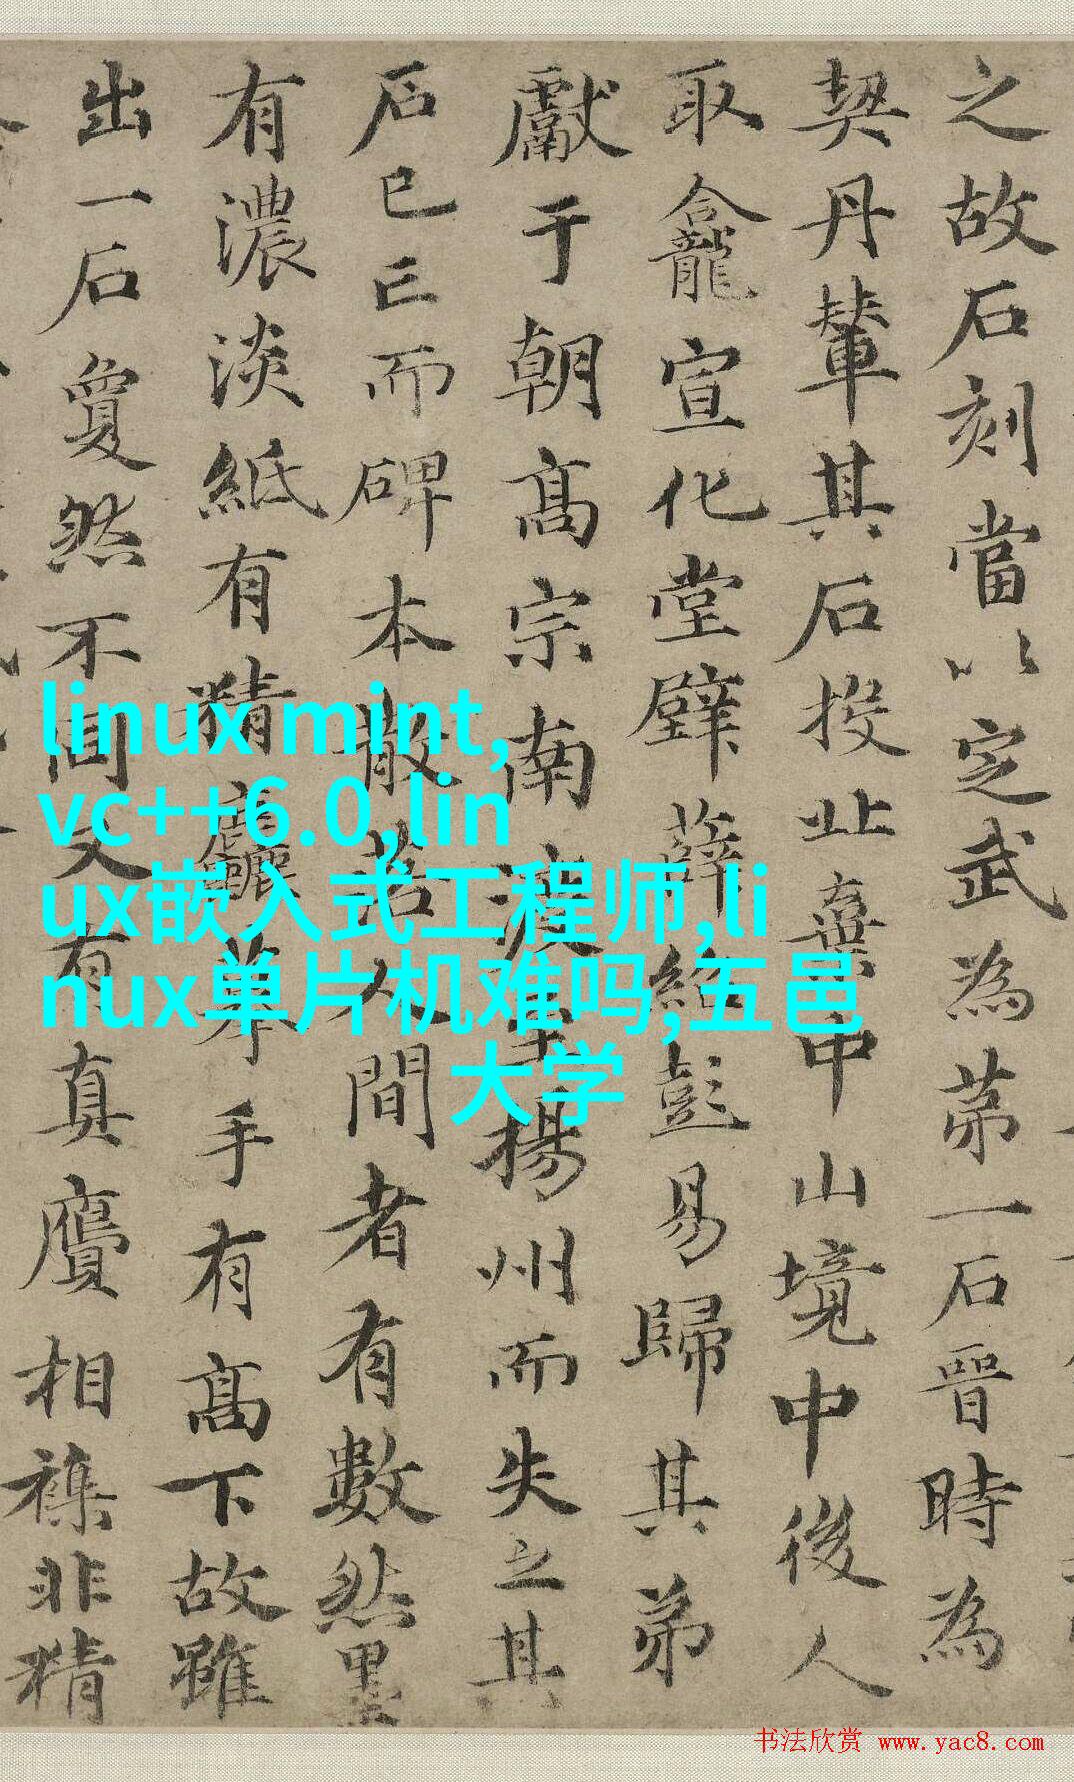 之故石刻當以定武為苐一石晉時為
契丹輦其石投止棄中山境中後人
取龕宣化堂壁薛紹彭易歸其弟
獻于朝髙宗南渡至揚州而失之其
石已亡而碑本散落人間者有數然墨
有濃淡紙有精麤摹手有髙下故雖
出一石夐然不同又有真贗相襍非精
linux mint,
vc++6.0,lin
ux嵌入式工程师,li
nux单片机难吗,五邑
大学
书法欣赏 www.yac8.com